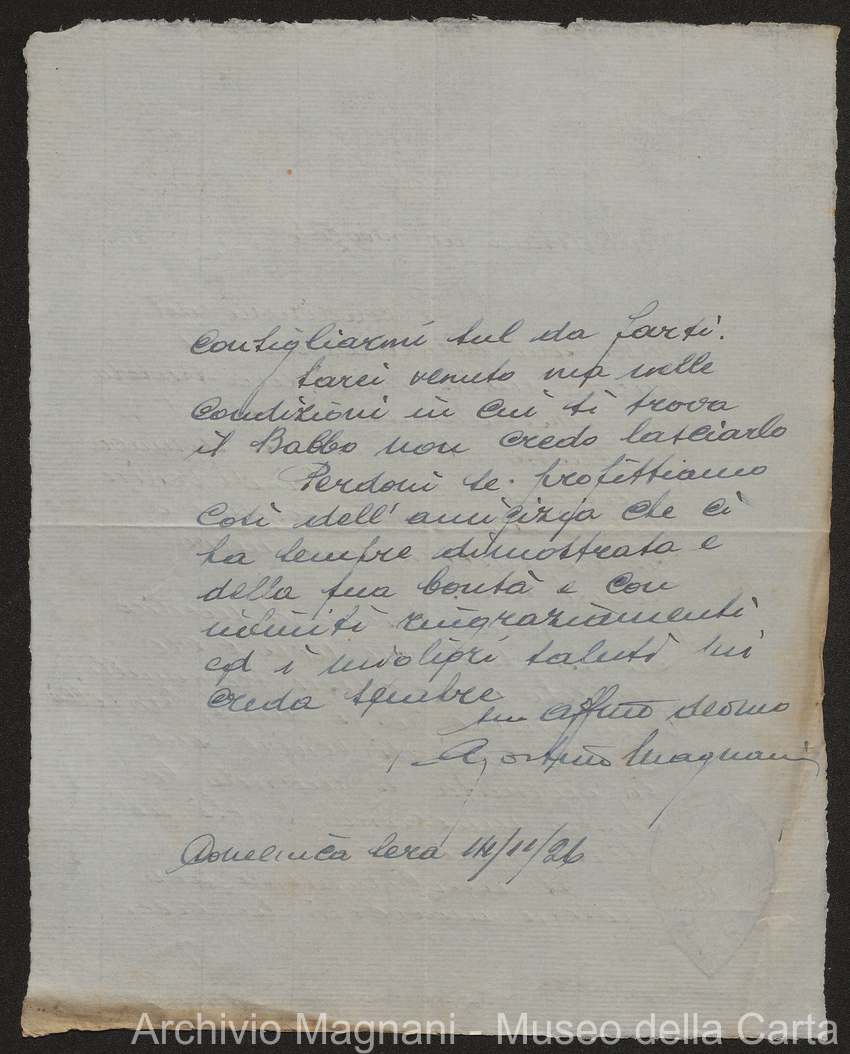 consigliarmi sul da farsi.
Sarei venuto ma nelle
condizioni in cui si trova
il Babbo non credo lasciarlo
Perdoni se profittiamo
così dell'amicizia che ci
ha sempre dimostrata e
della sua bontà e con
infiniti ringraziamenti
ed i migliori saluti mi
creda sempre
suo affmo
Agostino Magnani
Domenica sera 14/11/26
Archivio Magnani - Museo della Carta